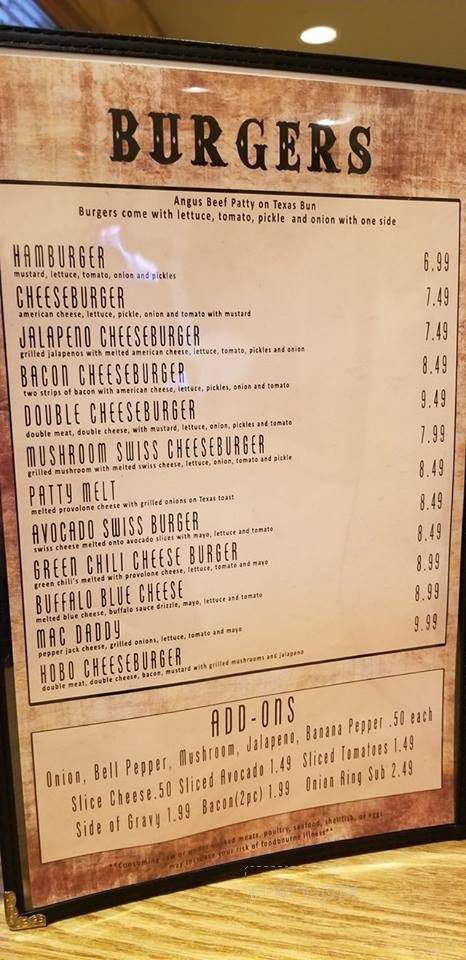 BURGERS
Angus Beef Patty on Texas Bun
Burgers come with lettuce, tomato, pickle and onion with one side
HAMBURGER 6.99
mustard, lettuce, tomato, onion and pickles
CHEESEBURGER 7.49
american cheese, lettuce, pickle, onion and tomato with mustard
JALAPENO CHEESEBURGER 7.49
grilled jalapenos with melted american cheese, lettuce, tomato, pickles and onion
BACON CHEESEBURGER 8.49
two strips of bacon with american cheese, lettuce, pickles, onion and tomato
DOUBLE CHEESEBURGER 9.49
double meat, double cheese, with mustard, lettuce, onion, pickles and tomato
MUSHROOM SWISS CHEESEBURGER 7.99
grilled mushroom with melted swiss cheese, lettuce, onion, tomato and pickle
PATTY MELT 8.49
melted provolone cheese with grilled onions on Texas toast
AVOCADO SWISS BURGER 8.49
swiss cheese melted onto avocado slices with mayo, lettuce and tomato
GREEN CHILI CHEESE BURGER 8.49
green chili's melted with provolone cheese, lettuce, tomato and mayo
BUFFALO BLUE CHEESE 8.99
melted blue cheese, buffalo sauce drizzle, mayo, lettuce and tomato
MAC DADDY 8.99
pepper jack cheese, grilled onions, lettuce, tomato and mayo
HOBO CHEESEBURGER 9.99
double meat, double cheese, bacon, mustard with grilled mushrooms and jalapeno
ADD-ONS
Onion, Bell Pepper, Mushroom, Jalapeno, Banana Pepper .50 each
Slice Cheese.50 Sliced Avocado 1.49 Sliced Tomatoes 1.49
Side of Gravy 1.99 Bacon(2pc) 1.99 Onion Ring Sub 2.49
**Consuming raw or undercooked meats, poultry, seafood, shellfish, or eggs
may increase your risk of foodbourne illness**